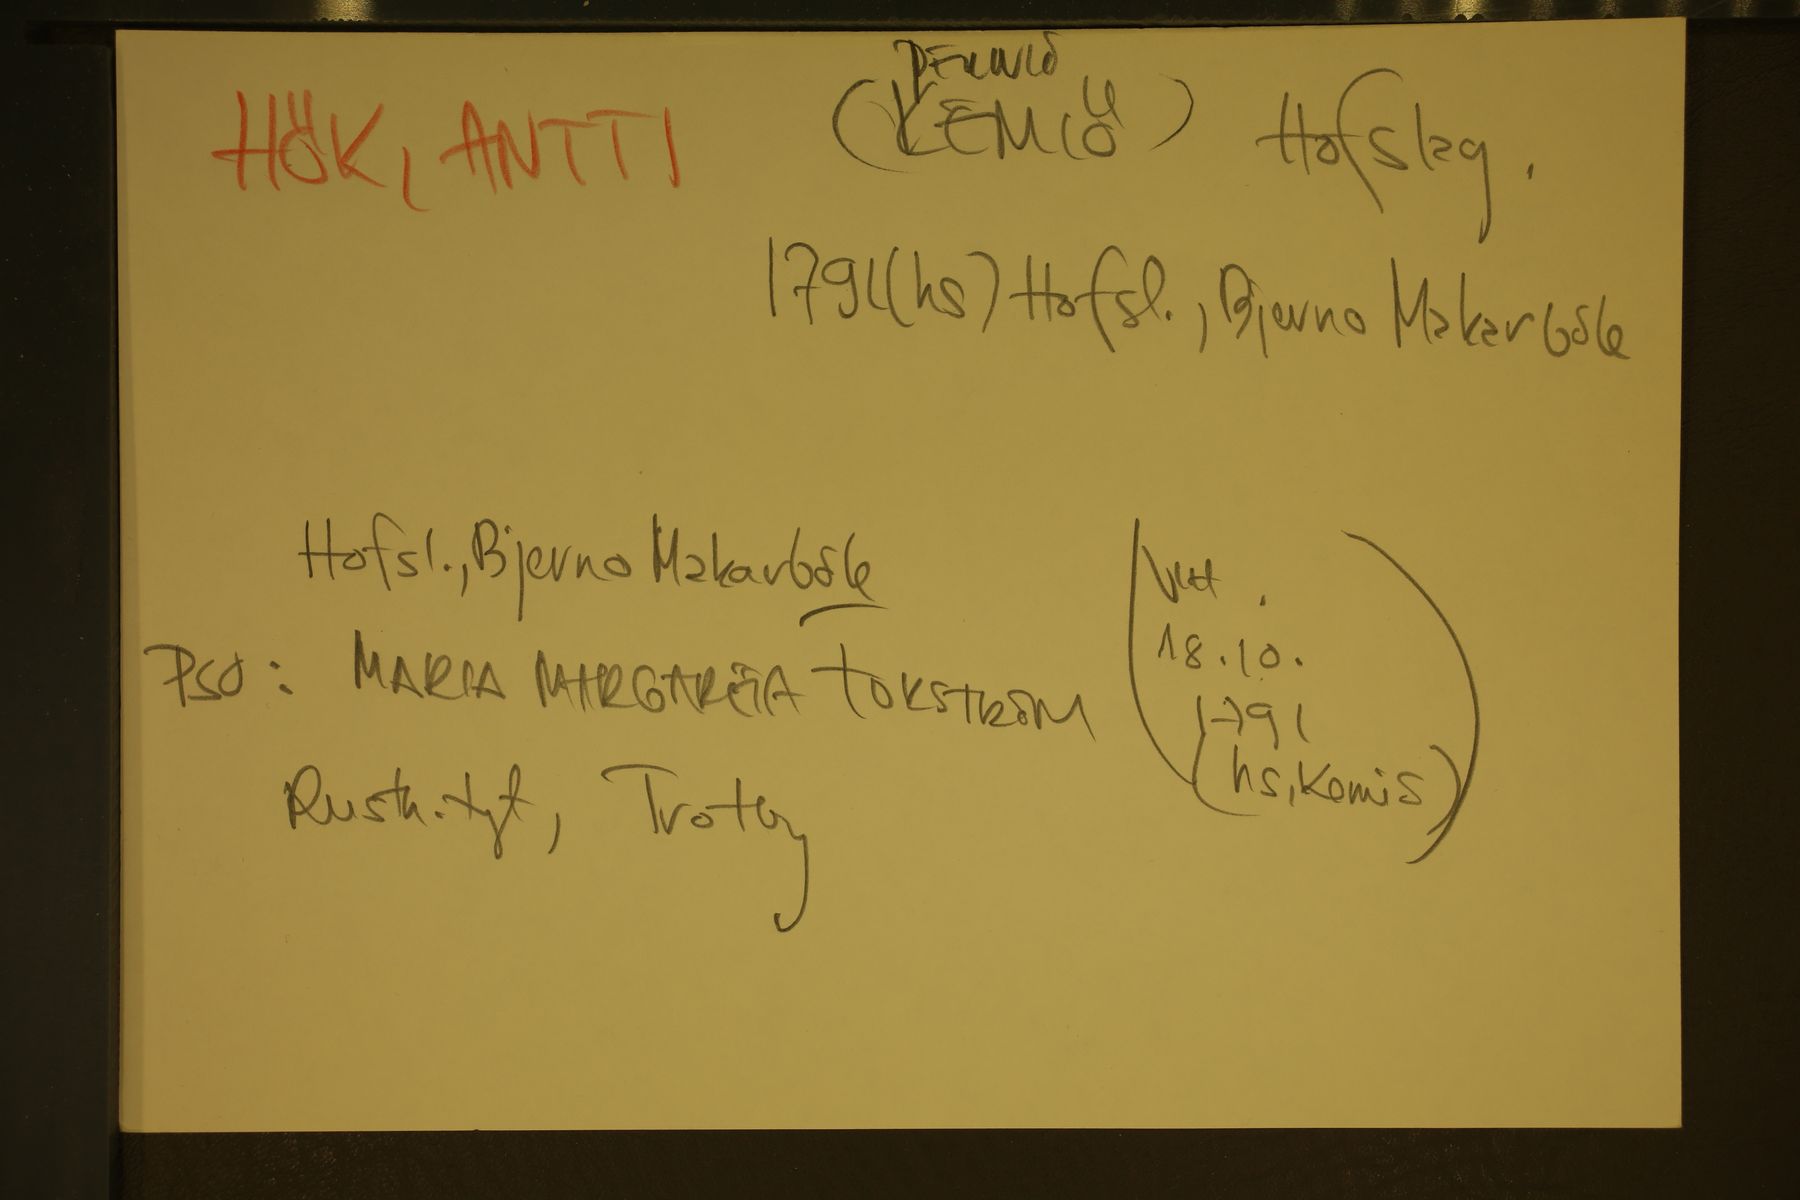 PERNIÖ
HÖK, ANTTI (KEMIÖ) Hofslag.
1791 (hs) Hofsl., Bjerno Makarböle
Hofsl., Bjerno Makarböle
PSO: MARIA MARGARETA TOKSTRÖM
Rusth. tyt, Trotby
Viht.
18.10.
1791
(hs, Kemiö)